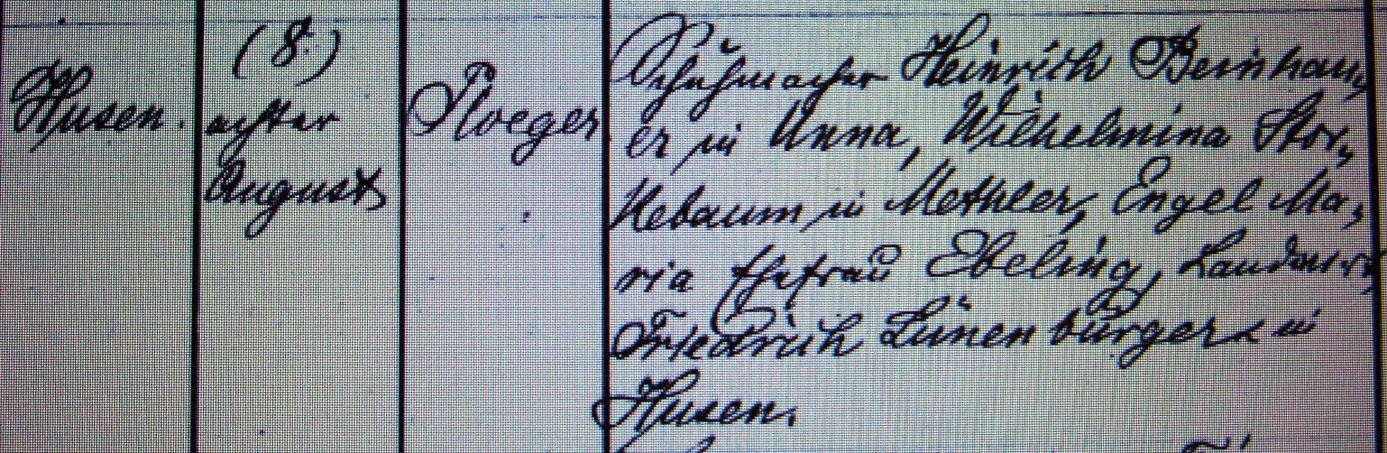 Husen.
(8.)
achter
August
Ploeger
Schuhmacher Heinrich Beinhau,
er in Unna, Wilhelmina Stor,
kebaum in Methler, Engel Ma,
ria Ehefrau Ebeling, Landwirth
Friedrich Lünenbürger in
Husen.